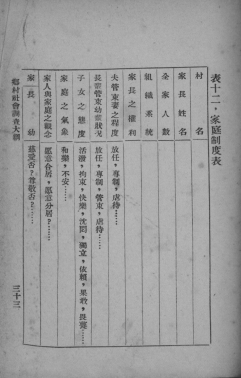 表十二，家庭制度表
村名
家長姓名
全家人數
組織系統
家長之權利
夫管束妻之程度 放任，專制，虐待……
長輩管束幼輩狀況 放任，專制，管束，虐待……
子女之態度 活潑，拘束，快樂，沈悶，獨立，依賴，果敢，畏葸……
家庭之氣象 和樂，不安……
家人與家庭之觀念 願意合居，願意分居？……
家長幼 慈愛否？尊敬否？……
鄉村社會調查大綱
三十三